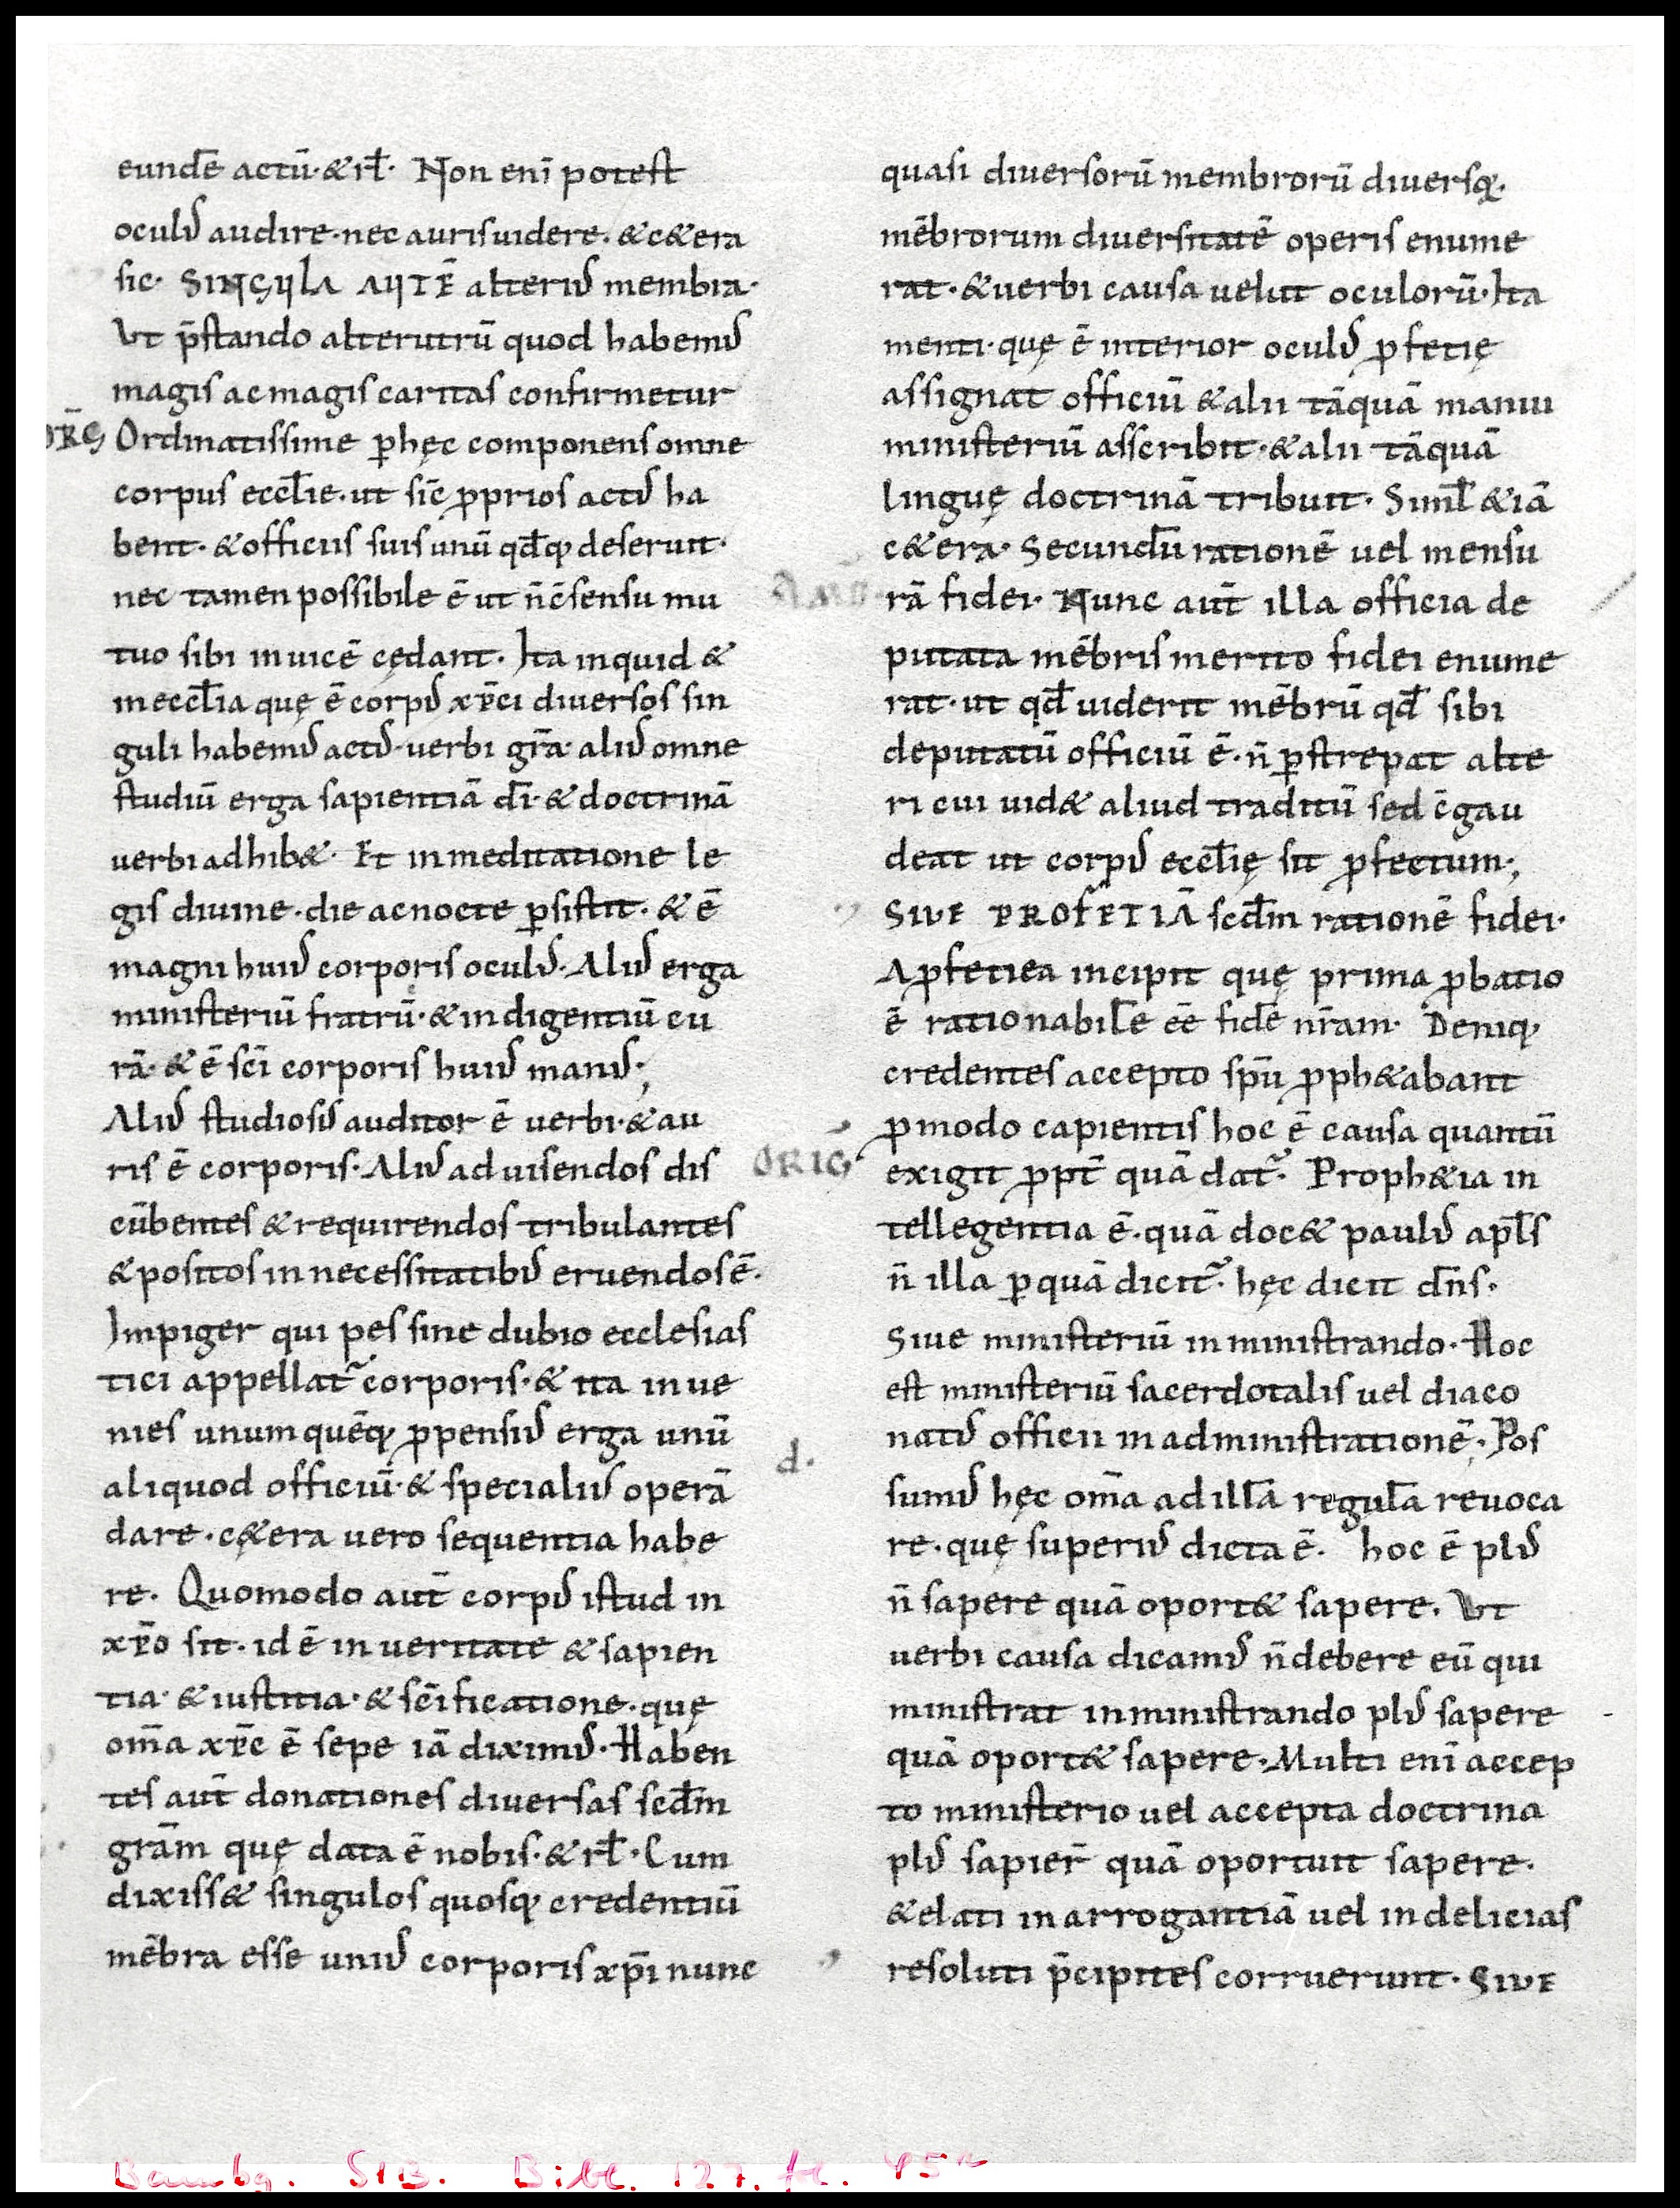 eundē actū·&rł· Non enī potest
oculꝰ audire·nec auris uidere·&c&era
sic· SINGULA AUTĒ alteriꝰ membra·
Ut p̄stando alterutrū quod habemꝰ
magis ac magis caritas confirmetur
ORG Ordinatissime ꝑ hęc componens omne
corpus eccłie·ut sic̄ ꝓprios actꝰ ha
bent·&officiis suis unū qđq; deseruit·
nec tamen possibile ē ut n̄ c̄sensu mu
tuo sibi inuicē cędant· Ita inquid &
in eccłia quę ē corpꝰ xp̄ci diuersos sin
guli habemꝰ actꝰ·uerbi gr̄a· aliꝰ omne
studiū erga sapientiā dī·& doctrinā
uerbi adhib&· Et in meditatione le
gis diuine·die ac nocte ꝑsistit·& ē
magni huiꝰ corporis oculꝰ·Aliꝰ erga
ministeriū fratrū·&indigentiū cu
rā·& ē sc̄i corporis huiꝰ manꝰ·,
Aliꝰ studiosꝰ auditor ē uerbi·&au
ris ē corporis·Aliꝰ ad uisendos dis
cūbentes &requirendos tribulantes
&positos in necessitatibꝰ eruendos ē·
Impiger qui pes sine dubio ecclesias
tici appellat᷑ corporis·& ita inue
nies unum quēq; ꝓpensiꝰ erga unū
aliquod officiū·& specialiꝰ operā
dare·c&era uero sequentia habe
re· Quomodo aut̄ corpꝰ istud in
xp̄o sit·id ē in ueritate &sapien
tia·&iustitia·&sc̄ificatione·quę
om̄a xp̄c ē sepe iā diximꝰ·Haben
tes aut̄ donationes diuersas scđm
grām quę data ē nobis·&rł·Cum
dixiss& singulos quosq; credentiū
mēbra esse uniꝰ corporis xp̄i nunc
quasi diuersorū membrorū diuersq;·
mēbrorum diuersitatē operis enume
rat·&uerbi causa uelut oculorū·Ita
menti·quę ē interior oculꝰ ꝓfetię
assignat officiū &alii tāquā manui
ministeriū asscribit·&alii tāquā
linguę doctrinā tribuit· Simł &iā
c&era· Secundū rationē uel mensu
rā fidei· Nunc aut̄ illa officia de
putata mēbris merito fidei enume
rat·ut qđ uiderit mēbrū qđ sibi
deputatū officiū ē·n̄ ꝑstrepat alte
ri cui uid& aliud traditū sed c̄gau
deat ut corpꝰ eccłię sit ꝓfectum·,
SIVE PROFETIĀ scđm rationē fidei·
A ꝓfetiea incipit quę prima ꝓbatio
ē rationabilē ēe fidē nr̄am· Deniq;
credentes accepto sp̄u ꝓph&abant
ꝓ modo capientis hoc ē causa quantū
ORIG exigit ꝓpt̄ quā dat᷑· Proph&ia in
tellegentia ē·quā doc& paulꝰ apłs
n̄ illa ꝑ quā dicit᷑· hęc dicit dn̄s·
d. Siue ministeriū in ministrando·Hoc
est ministeriū sacerdotalis uel diaco
natꝰ officii in administrationē·,Pos
sumꝰ hęc om̄a ad illā regulā reuoca
re·quę superiꝰ dicta ē· hoc ē plꝰ
n̄ sapere quā oport& sapere· Ut
uerbi causa dicamꝰ n̄ debere eū qui
ministrat in ministrando plꝰ sapere
quā oport& sapere·Multi enī accep
to ministerio uel accepta doctrina
plꝰ sapier̄ quā oportuit sapere·
&elati in arrogantiā uel in delicias
resoluti p̄cipites corruerunt· SIVE
Bambg. StB. Bibl. 127. fc. 95r